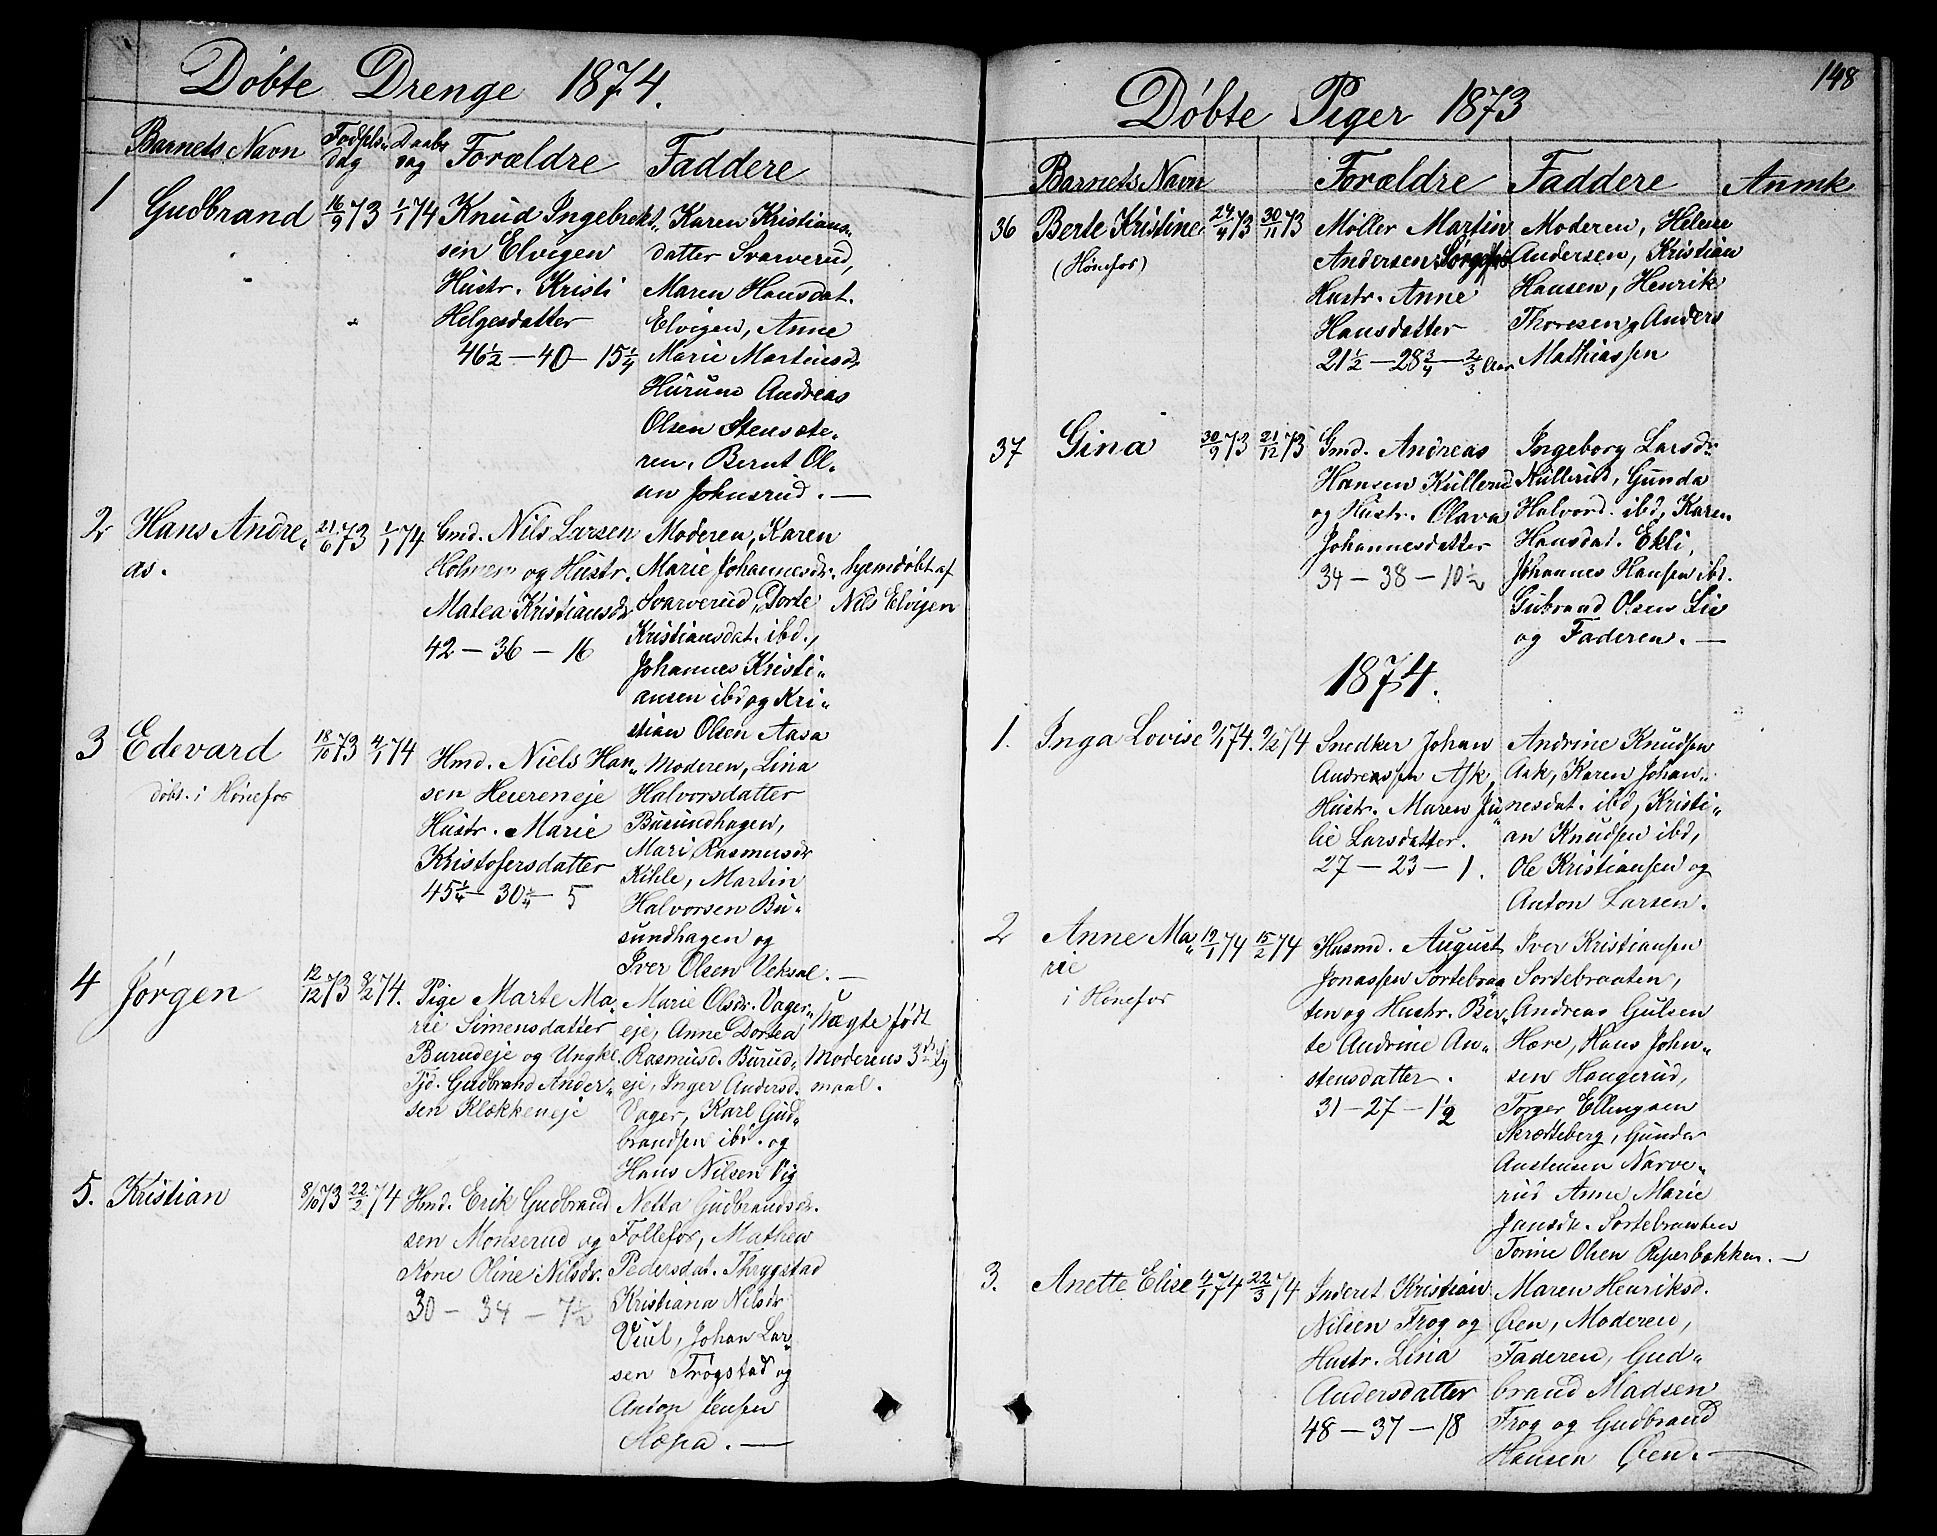 Døbte Drenge 1874.
Barnets Navn
Fødsels-
dag
Daabs
dag
Forældre
Faddere
1
Gudbrand
16/9 73
1/1 74
Knud Ingebrekt-
sen Elvigen
Hustr. Kristi
Helgesdatter
46 1/2 — 40 — 15 1/4
Karen Kristians-
datter Svarverud,
Maren Hansdat.
Elvigen, Anne
Marie Martinsd.
Hurum Andreas
Olsen Stensæte-
ren, Bernt Ol-
sen Johnsrud. —
2
Hans Andre-
as.
21/6 73
1/1 74
Gmd. Nils Larsen
Holmen og Hustr.
Matea Kristiansdr
42 — 36 — 16
Moderen, Karen
Marie Johannesdr.
Svarverud, Dorte
Kristiansdat. ibd.,
Johannes Kristi-
ansen ibd og Kri-
stian Olsen Aasa
hjemdøbt af
Nils Elvigen
3
Edevard
døbt. i Hønefos
18/10 73
4/1 74
Hmd. Niels Han-
sen Heiereneje
Hustr. Marie
Kristofersdatter
45 1/4 — 30 1/4 — 5
Moderen, Lina
Halvorsdatter
Busundhagen,
Mari Rasmusdr
Kihle, Martin
Halvorsen Bu-
sundhagen og
Iver Olsen Veksal. —
4
Jørgen
12/12 73
8/2 74.
Pige Marte Ma-
rie Simensdatter
Burudeje og Ungkl.
Tjd. Gudbrand Ander-
sen Klækkeneje
Marie Olsdr. Vager-
eje, Anne Dortea
Rasmusd. Burud-
eje, Inger Andersd.
Vager, Karl Gud-
brandsen ibd. og
Hans Nilsen Vig
Uægte født
Moderens 3die Lej
maal.
5.
Kristian
8/10 73
22/2 74
Hmd. Erik Gudbrand
sen Monserud og
Kone Oline Nilsdr.
30 — 34 — 7 1/2
Netta Gudbrandsdr.
Follefos, Mathea
Pedersdat. Thrygstad
Kristiana Nilsdr
Viul, Johan Lar-
sen Trøgstad og
Anton Jensen
Aasa. —
148
Døbte Piger 1873
Barnets Navn
Forældre
Faddere
Anmk.
36
Berte Kristine
(Hønefos)
24/4 73
30/11 73
Møller Martin
Andersen
Hustr. Anne
Hansdatter
21 1/2 — 28 3/4 — 2/3 Aar
Moderen, Helene
Andersen, Kristian
Hansen, Henrik
Thoresen og Anders
Mathiassen
37
Gina
30/9 73
21/12 73
Gmd. Andreas
Hansen Kullerud
og Hustr. Olava
Johannesdatter
34 — 38 — 10 1/2
Ingeborg Larsdr.
Kullerud, Gunda
Halvord. ibd, Karen
Hansdat. Ekli,
Johannes Hansen ibd.
Gubrand Olsen Lie
og Faderen. —
1874.
1.
Inga Lovise
9/1 74.
9/2 74
Snedker Johan
Andreassen Ask
Hustr. Maren Ju-
lie Larsdatter.
27 — 23 — 1.
Andrine Knudsen
Ask, Karen Johan-
nesdat. ibd, Kristi-
an Knudsen ibd,
Ole Kristiansen og
Anton Larsen.
2
Anne Ma-
rie
i Hønefos
19/1 74
15/2 74
Husmd. August
Jonassen Sortebraa
ten og Hustr. Ber-
te Andrine An-
stensdatter.
31 — 27 — 1 1/2
Iver Kristiansen
Sortebraaten,
Andreas Gulsen
Hære, Hans John-
sen Haugerud,
Torger Ellingsen
Skrætteberg, Gunder
Anstensen Narve-
rud Anne Marie
Jansdr. Sortebraaten
Tonine Olsen Reperbakken. —
3.
Anette Elise
4/1 74
22/3 74
Inderst Kristian
Nilsen Frog og
Hustr. Lina
Andersdatter
48 — 37 — 18
Maren Henriksd.
Øen, Moderen,
Faderen, Gud-
brand Madsen
Frog og Gudbrand
Hansen Øen. —